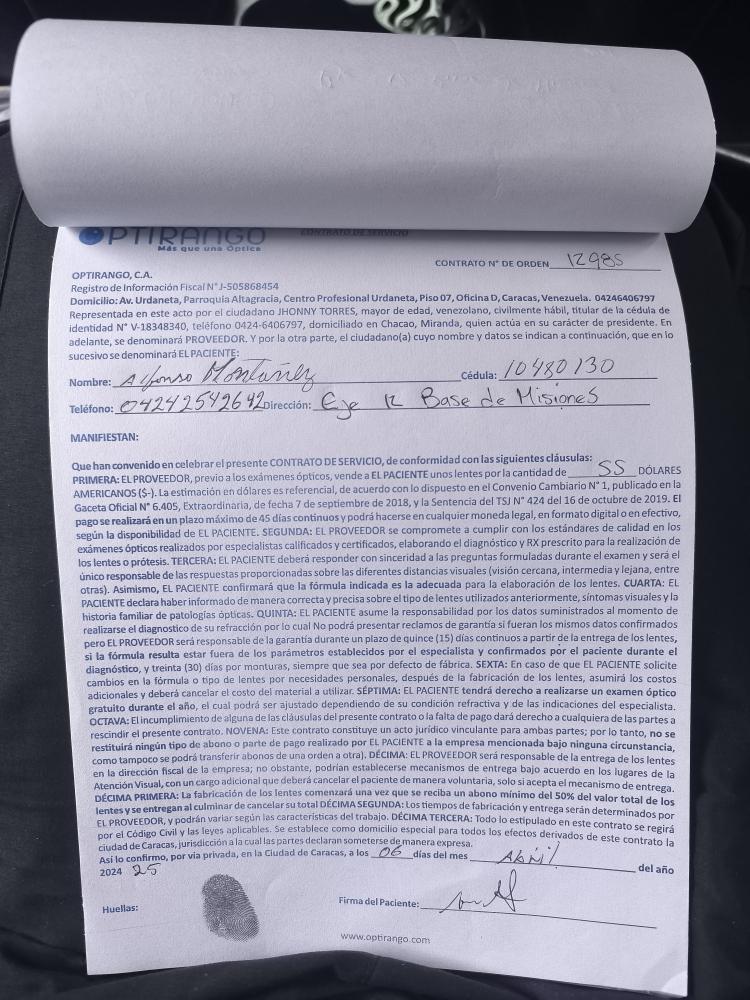 OPTIRANGO
Más que una Óptica
CONTRATO DE SERVICIO
CONTRATO N° DE ORDEN 12985
OPTIRANGO, C.A.
Registro de Información Fiscal N° J-505868454
Domicilio: Av. Urdaneta, Parroquia Altagracia, Centro Profesional Urdaneta, Piso 07, Oficina D, Caracas, Venezuela. 04246406797
Representada en este acto por el ciudadano JHONNY TORRES, mayor de edad, venezolano, civilmente hábil, titular de la cédula de
identidad N° V-18348340, teléfono 0424-6406797, domiciliado en Chacao, Miranda, quien actúa en su carácter de presidente. En
adelante, se denominará PROVEEDOR. Y por la otra parte, el ciudadano(a) cuyo nombre y datos se indican a continuación, que en lo
sucesivo se denominará EL PACIENTE:
Nombre: Alfonso Montañez Cédula: 10480130
Teléfono: 04242542642 Dirección: Eje 12 Base de Misiones
MANIFIESTAN:
Que han convenido en celebrar el presente CONTRATO DE SERVICIO, de conformidad con las siguientes cláusulas:
PRIMERA: EL PROVEEDOR, previo a los exámenes ópticos, vende a EL PACIENTE unos lentes por la cantidad de 55 DÓLARES
AMERICANOS ($-). La estimación en dólares es referencial, de acuerdo con lo dispuesto en el Convenio Cambiario N° 1, publicado en la
Gaceta Oficial N° 6.405, Extraordinaria, de fecha 7 de septiembre de 2018, y la Sentencia del TSJ N° 424 del 16 de octubre de 2019. El
pago se realizará en un plazo máximo de 45 días continuos y podrá hacerse en cualquier moneda legal, en formato digital o en efectivo,
según la disponibilidad de EL PACIENTE. SEGUNDA: EL PROVEEDOR se compromete a cumplir con los estándares de calidad en los
exámenes ópticos realizados por especialistas calificados y certificados, elaborando el diagnóstico y RX prescrito para la realización de
los lentes o prótesis. TERCERA: EL PACIENTE deberá responder con sinceridad a las preguntas formuladas durante el examen y será el
único responsable de las respuestas proporcionadas sobre las diferentes distancias visuales (visión cercana, intermedia y lejana, entre
otras). Asimismo, EL PACIENTE confirmará que la fórmula indicada es la adecuada para la elaboración de los lentes. CUARTA: EL
PACIENTE declara haber informado de manera correcta y precisa sobre el tipo de lentes utilizados anteriormente, síntomas visuales y la
historia familiar de patologías ópticas. QUINTA: EL PACIENTE asume la responsabilidad por los datos suministrados al momento de
realizarse el diagnostico de su refracción por lo cual No podrá presentar reclamos de garantía si fueran los mismos datos confirmados
pero EL PROVEEDOR será responsable de la garantía durante un plazo de quince (15) días continuos a partir de la entrega de los lentes,
si la fórmula resulta estar fuera de los parámetros establecidos por el especialista y confirmados por el paciente durante el
diagnóstico, y treinta (30) días por monturas, siempre que sea por defecto de fábrica. SEXTA: En caso de que EL PACIENTE solicite
cambios en la fórmula o tipo de lentes por necesidades personales, después de la fabricación de los lentes, asumirá los costos
adicionales y deberá cancelar el costo del material a utilizar. SÉPTIMA: EL PACIENTE tendrá derecho a realizarse un examen óptico
gratuito durante el año, el cual podrá ser ajustado dependiendo de su condición refractiva y de las indicaciones del especialista.
OCTAVA: El incumplimiento de alguna de las cláusulas del presente contrato o la falta de pago dará derecho a cualquiera de las partes a
rescindir el presente contrato. NOVENA: Este contrato constituye un acto jurídico vinculante para ambas partes; por lo tanto, no se
restituirá ningún tipo de abono o parte de pago realizado por EL PACIENTE a la empresa mencionada bajo ninguna circunstancia,
como tampoco se podrá transferir abonos de una orden a otra). DÉCIMA: EL PROVEEDOR será responsable de la entrega de los lentes
en la dirección fiscal de la empresa; no obstante, podrían establecerse mecanismos de entrega bajo acuerdo en los lugares de la
Atención Visual, con un cargo adicional que deberá cancelar el paciente de manera voluntaria, solo si acepta el mecanismo de entrega.
DÉCIMA PRIMERA: La fabricación de los lentes comenzará una vez que se reciba un abono mínimo del 50% del valor total de los
lentes y se entregan al culminar de cancelar su total DÉCIMA SEGUNDA: Los tiempos de fabricación y entrega serán determinados por
EL PROVEEDOR, y podrán variar según las características del trabajo. DÉCIMA TERCERA: Todo lo estipulado en este contrato se regirá
por el Código Civil y las leyes aplicables. Se establece como domicilio especial para todos los efectos derivados de este contrato la
ciudad de Caracas, jurisdicción a la cual las partes declaran someterse de manera expresa.
Así lo confirmo, por vía privada, en la Ciudad de Caracas, a los 06 días del mes Abril del año
2024 25
Huellas:
Firma del Paciente:
www.optirango.com